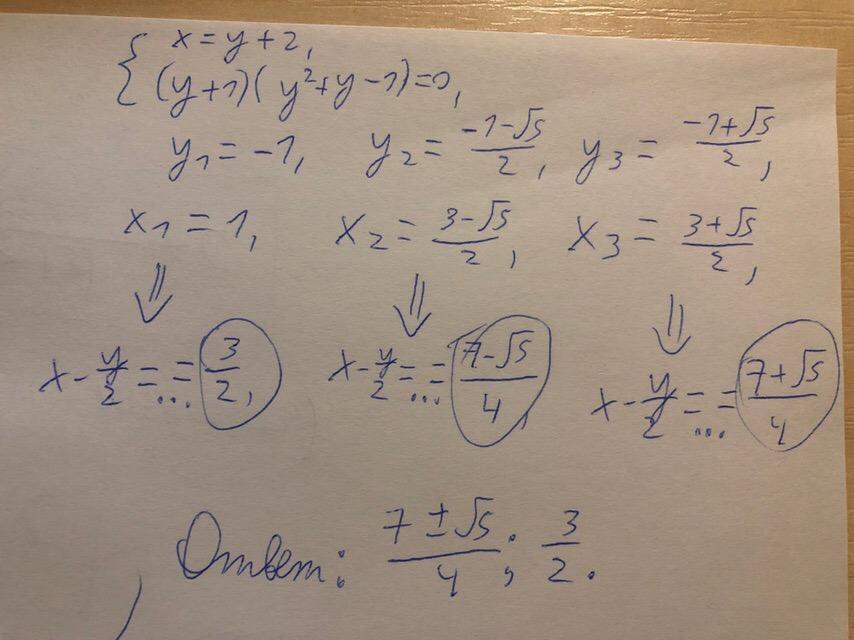 { x = y + 2,
(y+1)(y²+y-1)=0,
y₁ = -1, y₂ = (-1-√5)/2, y₃ = (-1+√5)/2,
x₁ = 1, x₂ = (3-√5)/2, x₃ = (3+√5)/2,
⇓ ⇓ ⇓
x - y/2 = ... = 3/2, x - y/2 = ... = (7-√5)/4, x - y/2 = ... = (7+√5)/4
Ответ: (7±√5)/4; 3/2.